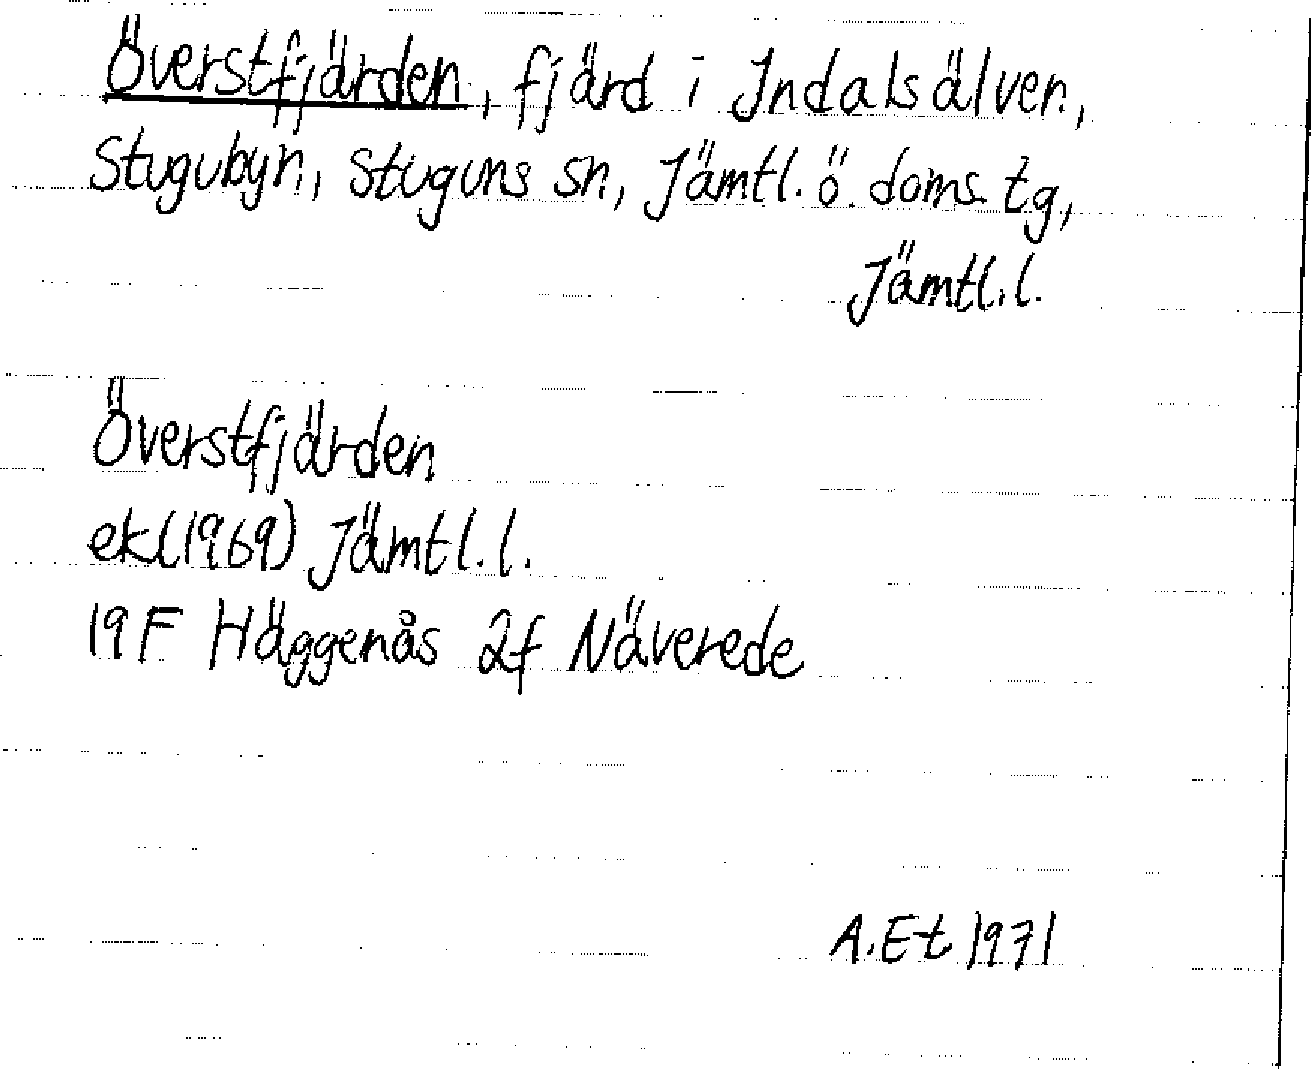 Överstfjärden, fjärd i Indalsälven,
Stugubyn, Stuguns sn, Jämtl. ö. doms. tg,
Jämtl.l.
Överstfjärden
ek(1969) Jämtl.l.
19F Häggenås 2f Näverede
A.Et 1971